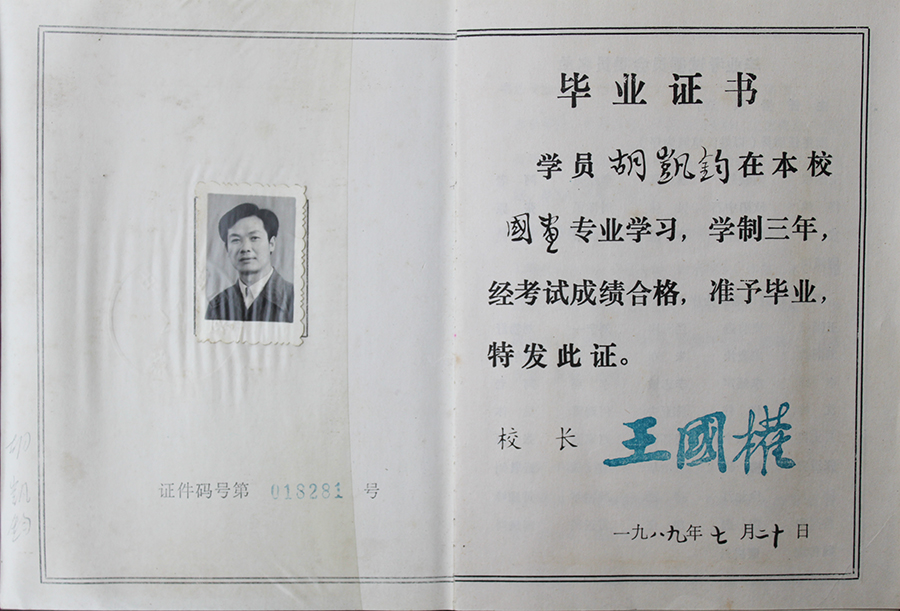 胡
凯
钧
证件码号第 018281 号
毕业证书
学员胡凯钧在本校
國画专业学习，学制三年，
经考试成绩合格，准予毕业，
特发此证。
校长 王國權
一九八九年七月二十日